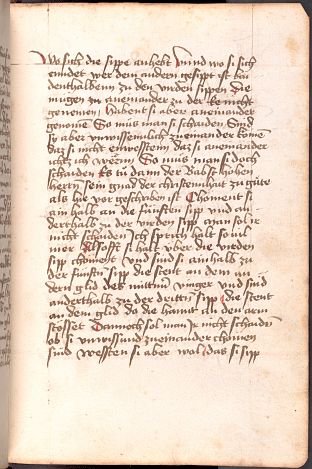 Wo sich die sippe anhebt vnnd wo si sich
endet wer dem andern gesippt ist kain
denthalbenn zu den vierden sippen die
mugen zu aneinander zu der Ee nicht
genemen habent si aber aneinander
genome So mus man si schaiden Sind
sy aber vnwissennlich zueinander kome
daz si nicht enwestenn daz si aneinander
icht ich So mus man si doch
schaiden Es tu dann der Babst hohen
herrn sein gnad der christennhait zu gute
als hie vor geschriben ist Choment si
ainhalb an die funfften sipp vnd an
derthalb zu der vierden sipp man sol ir
nicht schaiden Ich sprich halt so vil
mer Alsofft si halt vber die vierden
sipp choment vnd sind si ainhalb zu
der funften sipp die stent an dem an
dern glid des mittnn vinger vnd sind
anderthalb zu der dritten sipp die stent
an dem glid do die hannt an den arm
stosset Dannoch sol man ir nicht schaiden
ob si vnwissund zueinander chomen
sind Westen si aber wol das si sipp